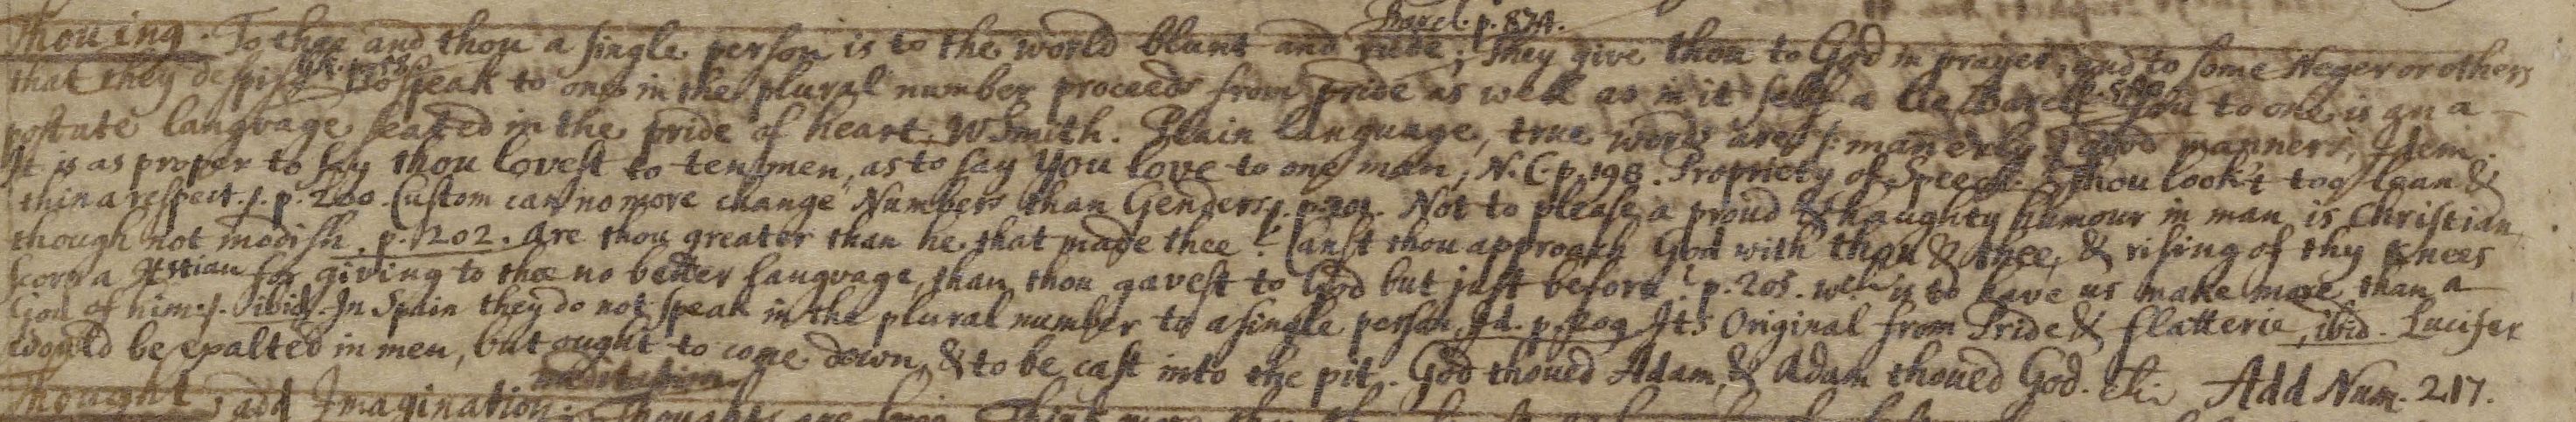 Barcl. p. 874.
Thouing. To thee and thou a single person is to the world blunt and rude; They give thou to God in prayer, and to some Neger or others
that they despise To speak to one in the plural number proceeds from pride as well as in it self a lie Barcl. You to one is an a
postate language seated in the pride of heart. W. Smith. Plain language, true words are manerly good manners, Idem.
It is as proper to say thou lovest to ten men, as to say You love to one man, N. C. p. 198. Propriety of Speech. Thou look't too lean &
thin a respect. p. 200. Custom can no more change Numbers than Genders, p. 201. Not to please a proud & haughty humour in man is Christian,
though not modish. p. 202. Are thou greater than he that made thee? Canst thou approach God with thou & thee, & rising of thy knees
scorn a Xstian for giving to thee no better language, than thou gavest to God but just before? p. 205. wch is to have us make more than a
God of him: ibid. In Spain they do not speak in the plural number to a single person, Id. p. 209 Its Original from Pride & flatterie, ibid. Lucifer
would be exalted in men, but ought to come down, & to be cast into the pit. God thoued Adam, & Adam thoued God. Add Num. 217.
meditation
Thought, add Imagination. Thoughts are